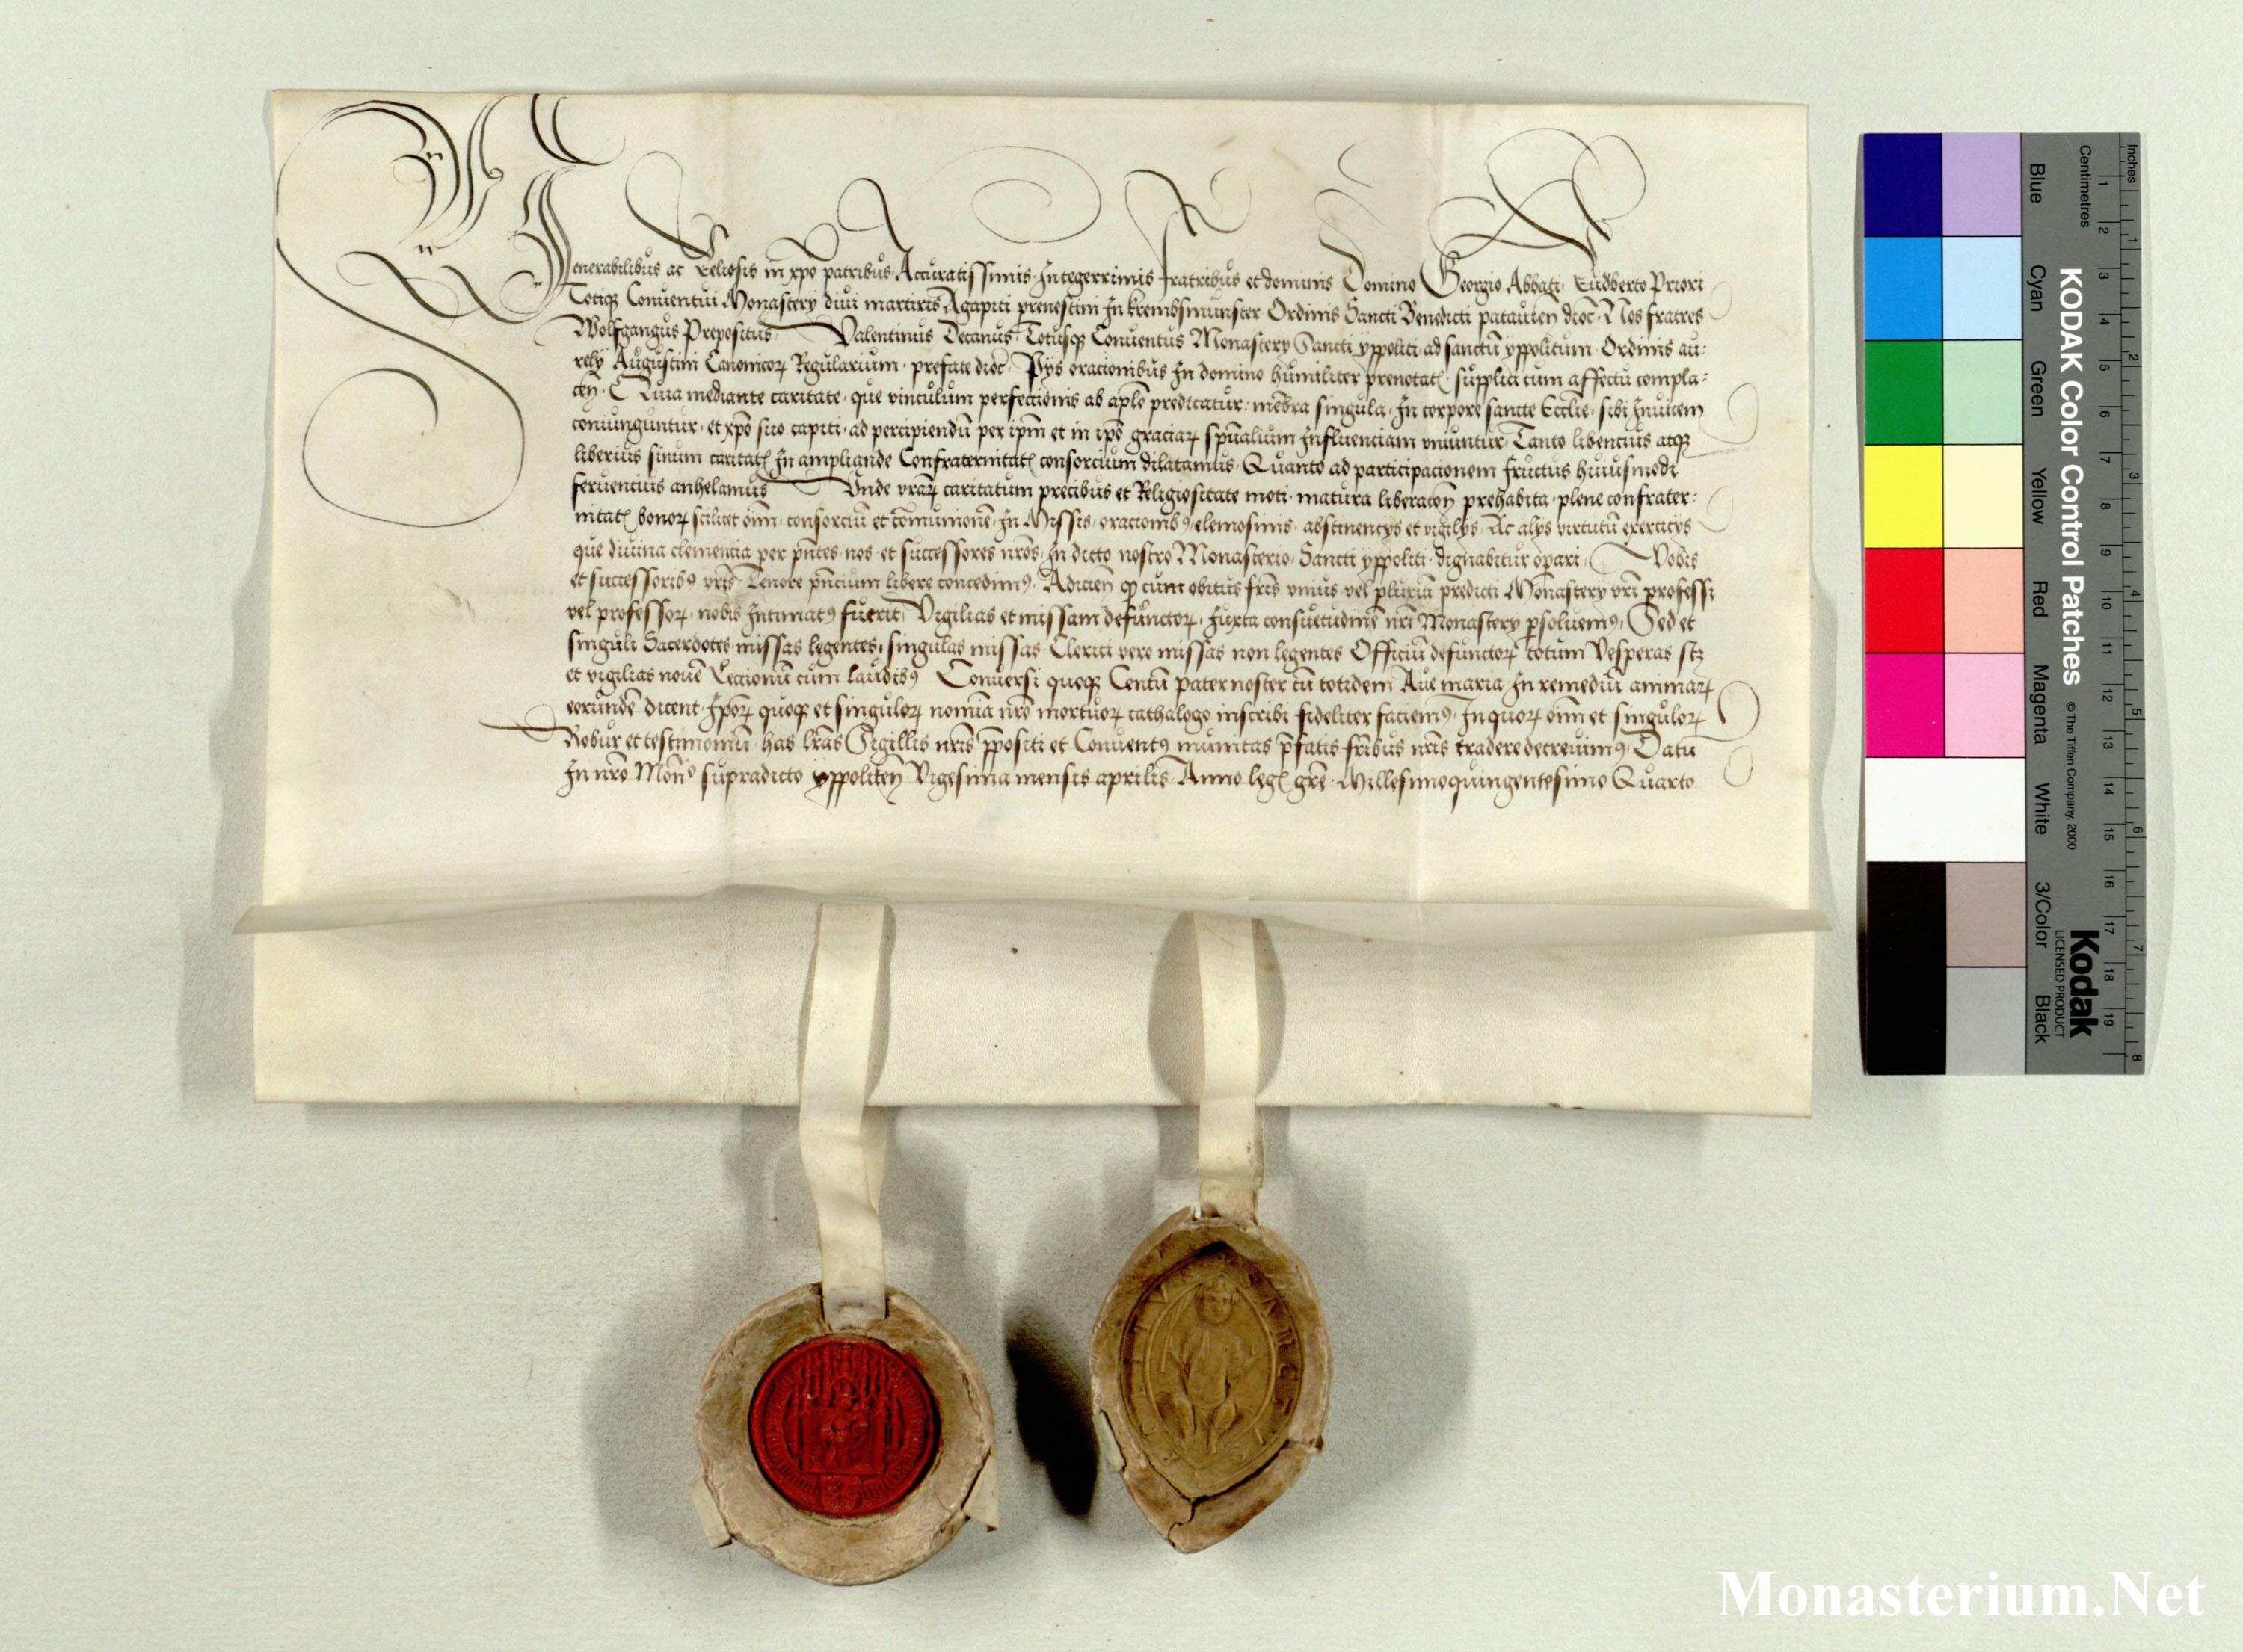 Venerabilibus ac Reliosis in xpo patribus Accuratissimis Integerrimis Fratribus et dominis Domino Georgio Abbati Rudberto Priori
Totiqꝫ Conuentui Monastery diui martiris Agapiti prenestini In krembsmunster Ordinis Sancti Benedicti patauien dioc Nos fratres
Wolfgangus Prepositus Valentinus Decanus Totusqꝫ Conuentus Monastery Sancti yppoliti ad sanctū yppolitum Ordinis au:
rely Augustini Canonicoꝝ Regularium prefate dioc Pys oracionibus In domino humiliter prenotatꝭ supplici cum affectu compla:
cen Quia mediante caritate que vinculum perfectionis ab aplo predicatur: mēbra singula In corpore sancte Ecclie sibi Inuicem
coniunguntur et xpo suo capiti ad percipiendū per ipm et in ipo graciaꝝ spūalium Influenciam vniuntur Tanto libencius atqꝫ
liberius sinum caritatꝭ In ampliande Confraternitatꝭ consorcium dilatamus Quanto ad participacionem fructus huiusmodi
feruencius anhelamus Vnde vraꝝ caritatum precibus et Religiositate moti matura liberacōn prehabita plene confrater:
nitatꝭ bonoꝝ scilicet oīm consorciū et cōmunionē In Missis oracionibꝰ elemosinis abstinencys et vigilys Ac alys virtutū exercicys
que diuina clemencia per pn̄tes nos et successores nros In dicto nostro Monasterio Sancti yppoliti dignabitur opari Vobis
et successoribꝰ vris Tenore pn̄cium libere concedimꝰ Adicien ꝙ cum obitus fris vnius vel pluriū predicti Monastery vri professi
vel professoꝝ nobis Intimatꝰ fuerit Vigilias et missam defunctoꝝ Iuxta consuetudinē nri Monastery psoluemꝰ Sed et
singuli Sacerdotes missas legentes singulas missas Clerici vero missas non legentes Officiū defunctoꝝ totum Vesperas scꝫ
et vigilias nouē Leccionū cum laudibꝰ Conuersi quoqꝫ Centū pater noster cū totidem Aue maria In remediū animaꝝ
eorundē dicent Ipoꝝ quoqꝫ et singuloꝝ nomina nro mortuoꝝ cathalogo inscribi fideliter faciemꝰ In quoꝝ oīm et singuloꝝ
Robur et testimoniū has lras Sigillis nris ppositi et Conuentꝰ munitas pfatis fribus nris tradere decreuimꝰ Datū
In nro Mon̄o supradicto yppoliten Vigesima mensis aprilis Anno legꝭ gre Millesimoquingentesimo Quarto
KODAK Color Control Patches
© The Tiffen Company, 2000
Kodak
LICENSED PRODUCT
Inches
1 2 3 4 5 6 7 8
Centimetres
1 2 3 4 5 6 7 8 9 10 11 12 13 14 15 16 17 18 19
Blue
Cyan
Green
Yellow
Red
Magenta
White
3/Color
Black
Monasterium.Net